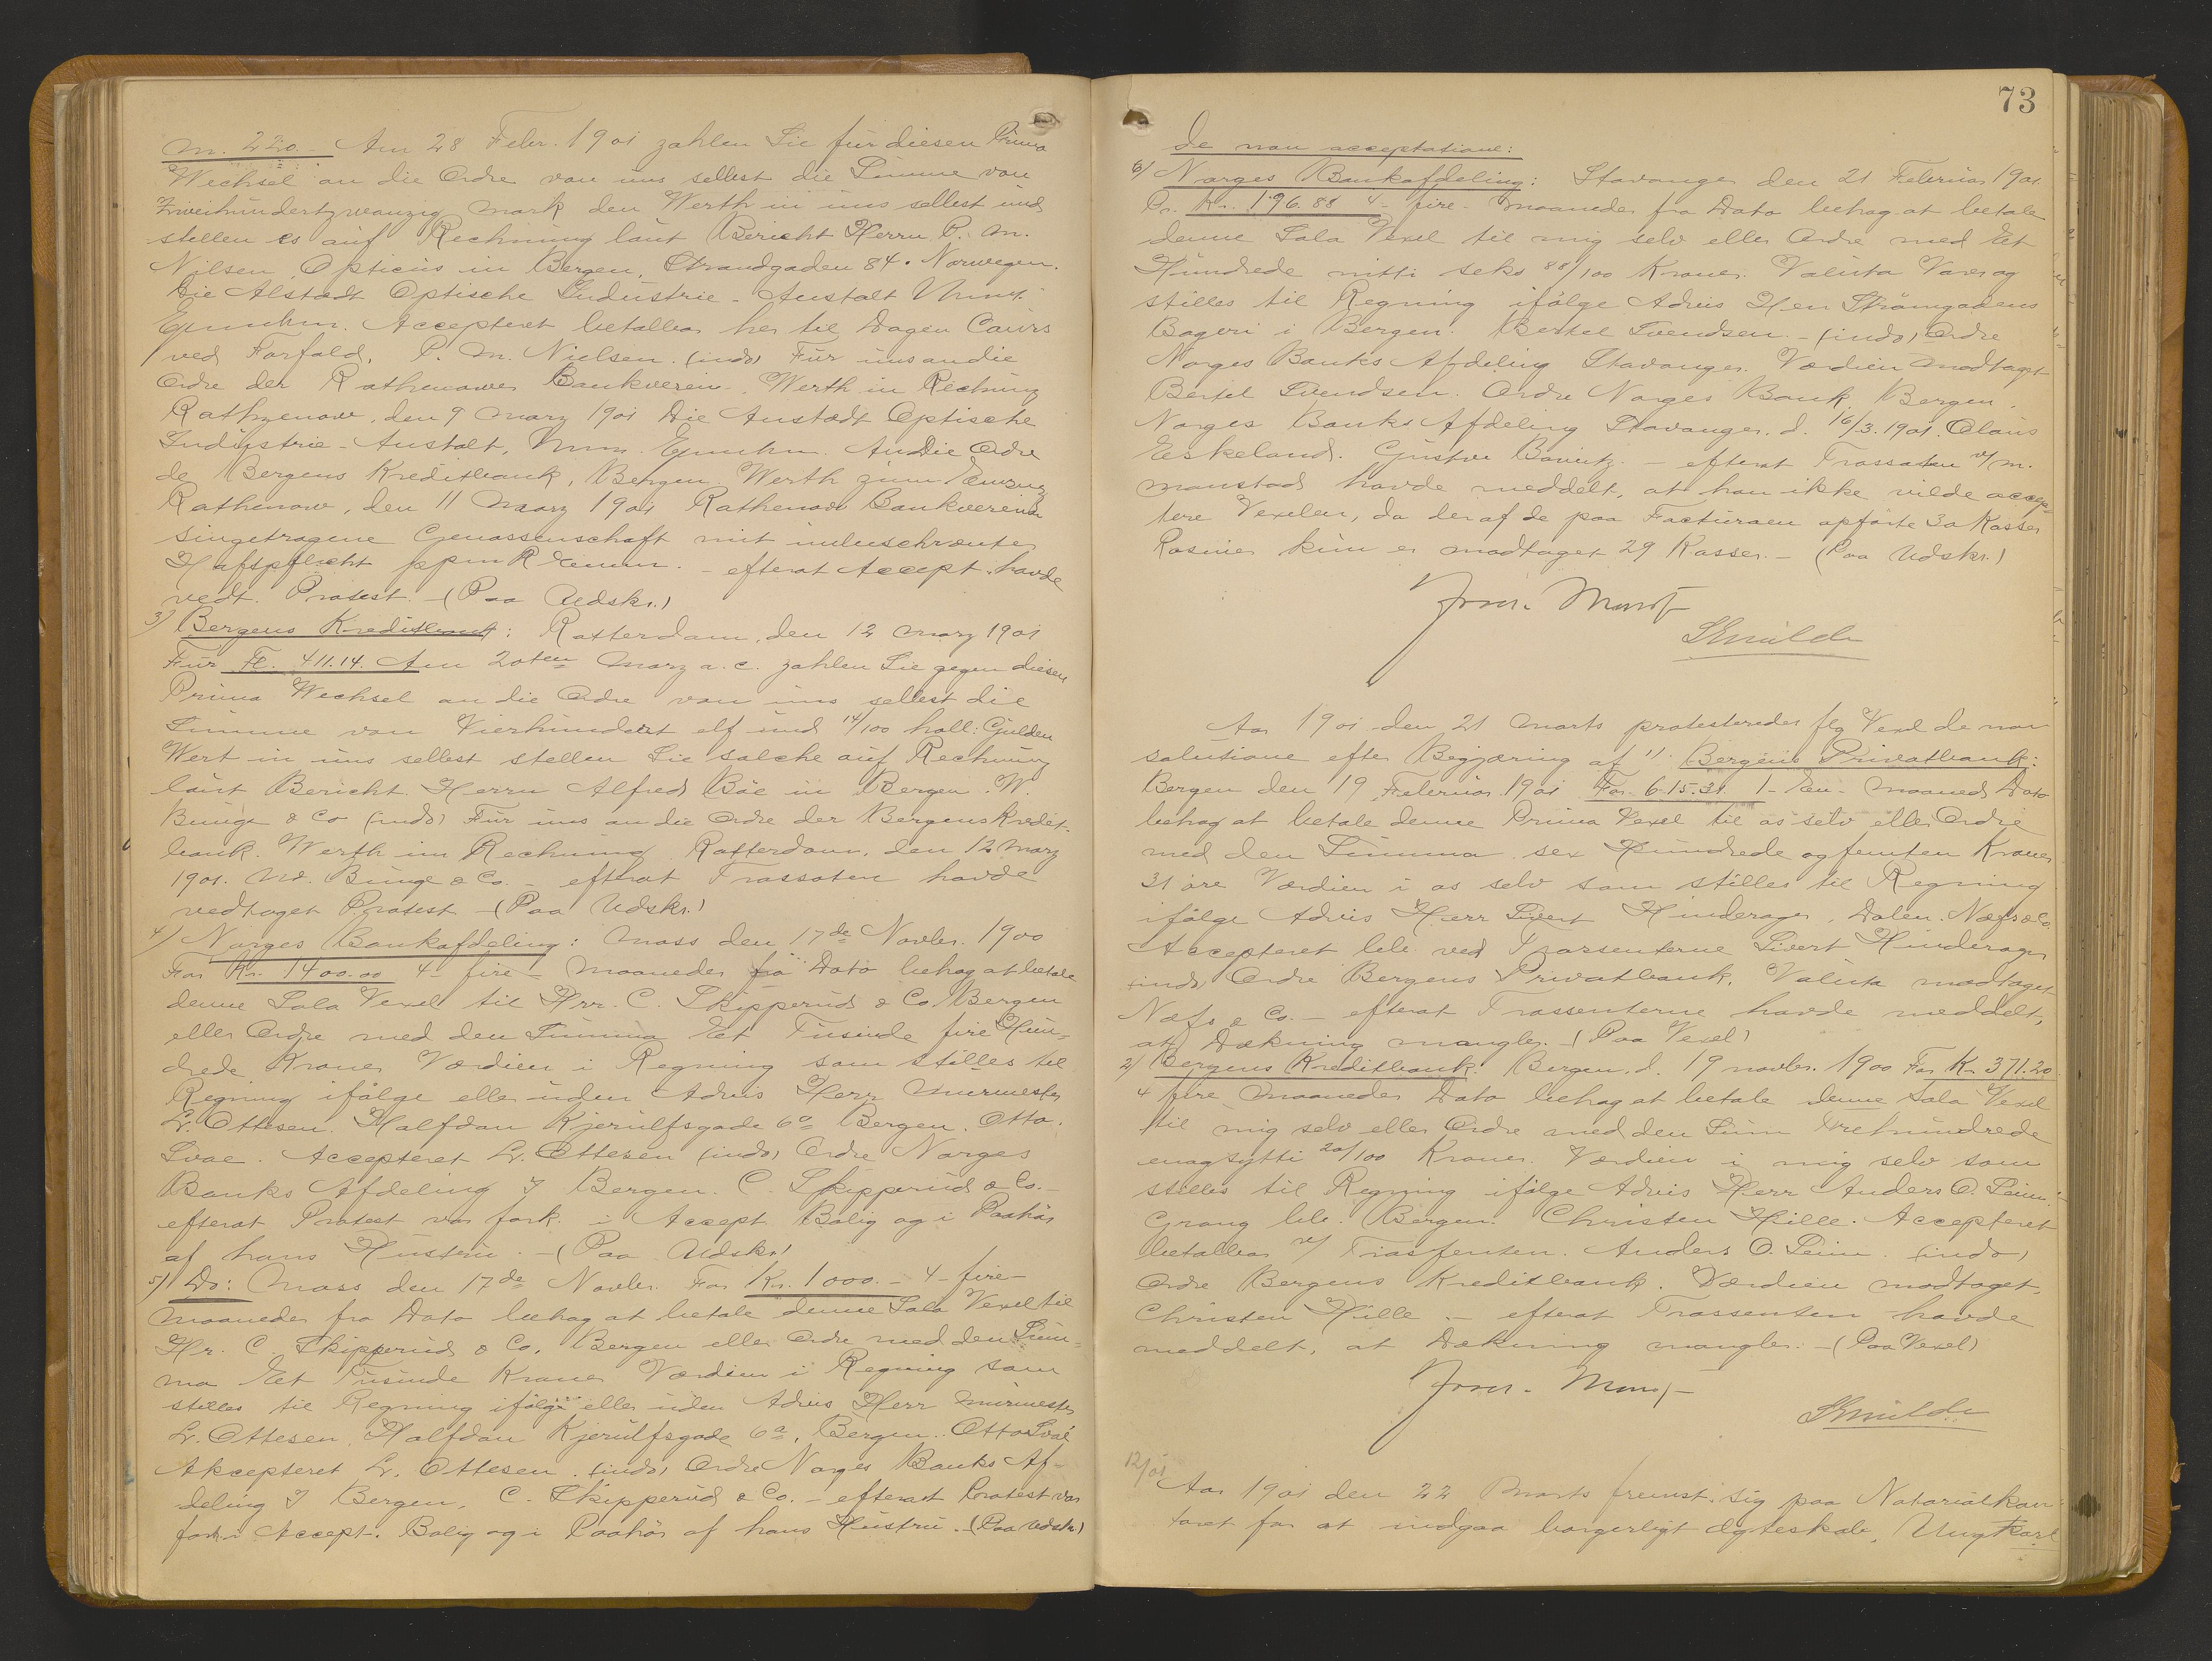 M. 220.- Am 28 Febr. 1901 zahlen Sie für diesen Prima
Wechsel an die Ordre von uns selbst die Summe von
Zweihundertzwanzig Mark den Werth in uns selbst und
stellen es auf Rechnung laut Bericht Herrn P. M.
Nilsen, Opticus in Bergen, Strandgaden 84. Norwegen.
Die Alstædt Optische Industrie-Anstalt
Accepteret betalbar her til Dagen Cours
ved Forfald. P. M. Nielsen. (indo) Für uns an die
Ordre der Rathenower Bankverein. Werth in Rechnung
Rathenow, den 9 Marz 1901 Die Anstædt Optische
Industrie-Anstalt, An Die Ordre
de Bergens Kreditbank, Bergen Werth zum
Rathenow, den 11 Marz 1901 Rathenow Bankverein
eingetragene Genossenschaft mit
Haftspflicht - efterat Accept. havde
vedt. Protest. - (Paa Udskr.)
3) Bergens Kreditbank: Rotterdam, den 12 Marz 1901
Für Fl. 411.14. Am 20ten Marz a.c. zahlen Sie gegen diesen
Prima Wechsel an die Ordre von uns selbst die
Summe von Vierhundert elf und 14/100 holl: Gulden
Wert in uns selbst stellen Sie solche auf Rechnung
laut Bericht. Herrn Alfred Böe in Bergen. W.
Bunge & Co (indo) Für uns an die Ordre der Bergens Kredit-
bank. Werth in Rechnung Rotterdam, den 12 Marz
1901. W. Bunge & Co. - efterat Trassaten havde
vedtaget Protest - (Paa Udskr.)
4) Norges Bankafdeling: Moss den 17de Novbr. 1900
For Kr. 1400.00 4- fire - Maaneder fra Dato behag at betale
denne Sola Vexel til Hrr. C. Skipperud & Co. Bergen
eller Ordre med den Summa Et Tusinde fire Hun-
drede Kroner Værdien i Regning som stilles til
Regning ifølge eller uden Advis Herr Murmester
L. Ottesen. Halfdan Kjerulfsgade 6a Bergen. Otto
Svae. Accepteret L. Ottesen (indo) Ordre Norges
Banks Afdeling I Bergen. C. Skipperud & Co. -
efterat Protest var fork. i Accept. Bolig og i Paahør
af hans Hustru. - (Paa Udskr.)
5) Do: Moss den 17de Novbr. For Kr. 1000.- 4- fire-
Maaneder fra Dato behag at betale denne Sola Vexel til
Hr. C. Skipperud & Co. Bergen eller Ordre med den Sum-
ma Et Tusinde Kroner Værdien i Regning som
stilles til Regning ifølge eller uden Advis Herr Murmester
L. Ottesen. Halfdan Kjerulfsgade 6a, Bergen. Otto Svae
Akcepteret L. Ottesen. (indo) Ordre Norges Banks Af-
deling I Bergen. C. Skipperud & Co. - efterat Protest var
fork. i Accept. Bolig og i Paahør af hans Hustru. - (Paa Udskr.)
73
de non acceptatione:
6) Norges Bankafdeling: Stavanger den 21 Februar 1901
Pr. Kr. 196.88 4- fire - Maaneder fra Dato behag at betale
denne Sola Vexel til mig selv eller Ordre med Et
Hundrede nitti seks 88/100 Kroner. Valuta Varer og
stilles til Regning ifølge Advis Herr Strømgadens
Bageri i Bergen. Bertel Svendsen. - (indo) Ordre
Norges Banks Afdeling Stavanger. Værdien modtaget
Bertel Svendsen. Ordre Norges Bank, Bergen.
Norges Banks Afdeling Stavanger. d. 16/3. 1901. Claus
Eskeland. Gustav - efterat Trassaten v/ M.
Monstad havde meddelt, at han ikke vilde accep-
tere Vexelen, da der af de paa Facturaen opførte 30 Kasser
Rosiner kun er modtaget 29 Kasser. - (Paa Udskr.)
Aar 1901 den 21 Marts protesteredes flg Vexel de non
solutione efter Begjæring af 1) Bergens Privatbank:
Bergen den 19 Februar 1901 For 615.31 1- En- Maaned Dato
behag at betale denne Prima Vexel til os selv eller Ordre
med den Summa sex Hundrede og femten Kroner
31 øre Værdien i os selv som stilles til Regning
ifølge Advis Herr Sivert Hinderager, Dalen. Næss & Co.
Accepteret bet. ved Trassenterne Sivert Hinderager
(indo) Ordre Bergens Privatbank. Valuta modtaget
Næss & Co. - efterat Trassenterne havde meddelt,
at Dækning mangler. - (Paa Vexel)
2) Bergens Kreditbank: Bergen, d. 19 novbr. 1900 For Kr. 371.20
4 fire Maaneder Dato behag at betale denne Sola Vexel
til mig selv eller Ordre med den Sum Trehundrede
enogsytti 20/100 Kroner. Værdien i mig selv som
stilles til Regning ifølge Advis Herr Anders O. Leim
Bergen. Christen Hille. Accepteret
betalbar v/ Trassenten. Anders O. Leim. (indo)
Ordre Bergens Kreditbank. Værdien modtaget.
Christen Hille. - efterat Trassenten havde
meddelt, at Dækning mangler. - (Paa Vexel)
12/01
Aar 1901 den 22 Marts fremst. sig paa Notarialkon-
toret for at indgaa borgerligt Ægteskab, Ungkarl